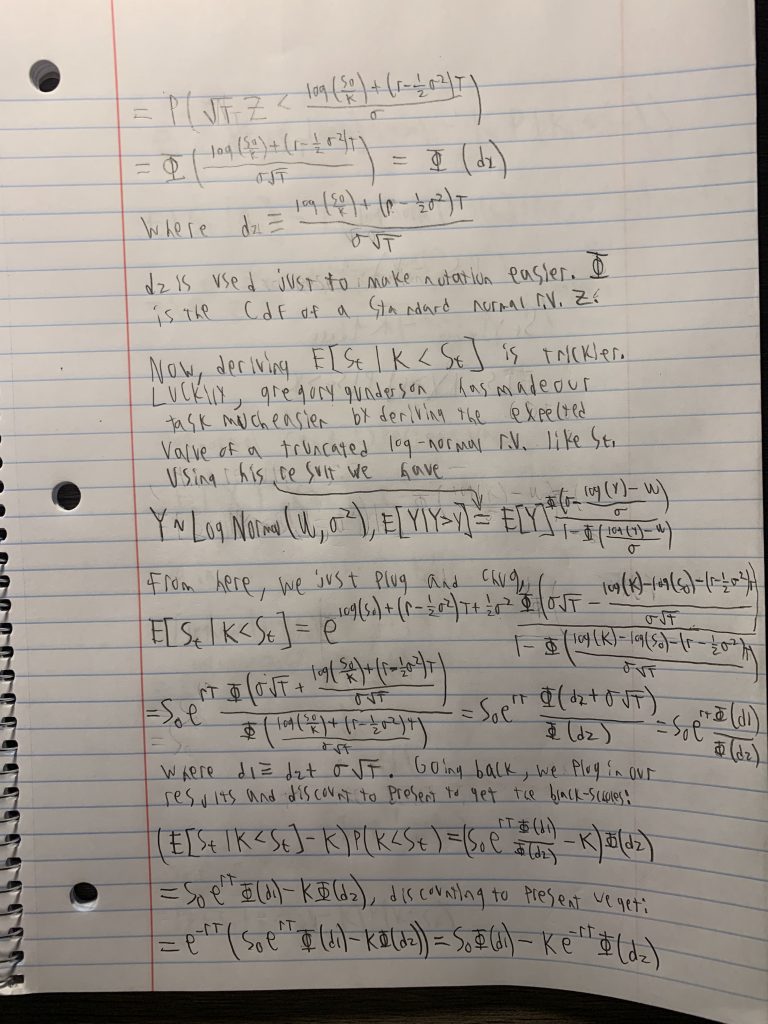 = P(√T Z < (log(S0/K) + (r - 1/2 σ²)T)/σ)
= Φ((log(S0/K) + (r - 1/2 σ²)T)/(σ√T)) = Φ(d2)
where d2 ≡ (log(S0/K) + (r - 1/2 σ²)T)/(σ√T)
d2 is used just to make notation easier. Φ
is the CdF of a standard normal r.v. Z.
Now, deriving E[St | K < St] is trickier.
Luckily, gregory gunderson has made our
task much easier by deriving the expected
value of a truncated log-normal r.v. like St.
Using his result we have
Y ~ Log Normal(u, σ²), E[Y|Y>y] = E[Y] Φ(σ - (log(Y) - u)/σ)/(1 - Φ((log(Y) - u)/σ))
From here, we just plug and chug,
E[St | K < St] = e^(log(S0) + (r - 1/2 σ²)T + 1/2 σ²) Φ(σ√T - (log(K) - log(S0) - (r - 1/2 σ²)T)/(σ√T))/(1 - Φ((log(K) - log(S0) - (r - 1/2 σ²)T)/(σ√T)))
= S0 e^(rT) Φ(σ√T + (log(S0/K) + (r - 1/2 σ²)T)/(σ√T))/Φ((log(S0/K) + (r - 1/2 σ²)T)/(σ√T)) = S0 e^(rT) Φ(d2 + σ√T)/Φ(d2) = S0 e^(rT) Φ(d1)/Φ(d2)
where d1 ≡ d2 + σ√T. Going back, we plug in our
results and discount to present to get the black-scholes:
(E[St | K < St] - K)P(K < St) = (S0 e^(rT) Φ(d1)/Φ(d2) - K)Φ(d2)
= S0 e^(rT) Φ(d1) - KΦ(d2), discounting to present we get:
= e^(-rT) (S0 e^(rT) Φ(d1) - KΦ(d2)) = S0 Φ(d1) - K e^(-rT) Φ(d2)